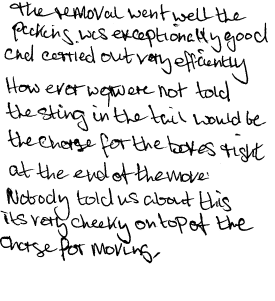 the removal went well the
packing was exceptionally good
and carried out very efficiently
However we were not told
the sting in the tail would be
the charge for the boxes right
at the end of the move.
Nobody told us about this
its very cheeky on top of the
charge for moving.